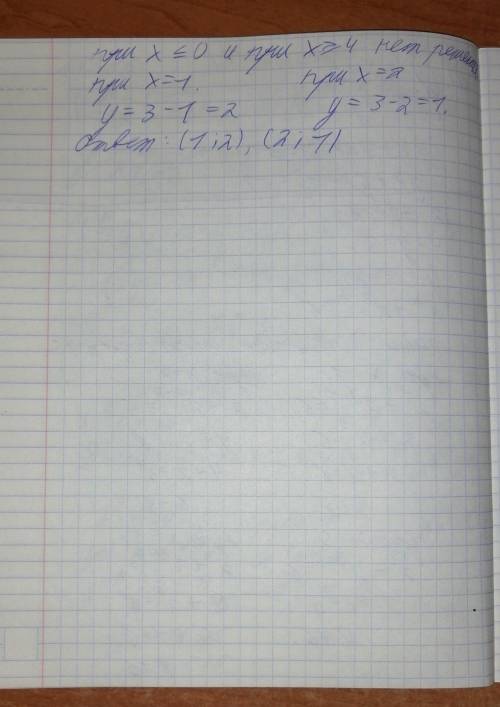 при x ≤ 0 и при x ≥ 4 нет решений
при x=1. при x=2
y = 3-1 = 2 y = 3-2=1.
Ответ: (1;2), (2;1)